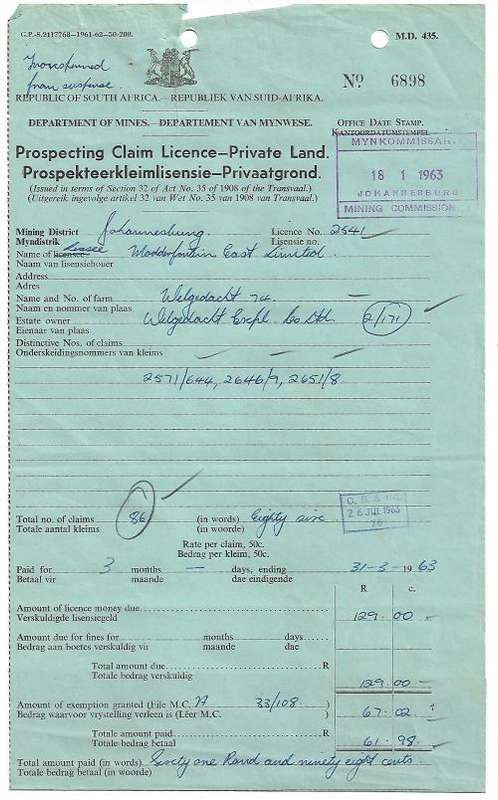 G.P.-S.2117768-1961-62-50-200.
M.D. 435.
Transferred
from suspense.
No 6898
REPUBLIC OF SOUTH AFRICA.—REPUBLIEK VAN SUID-AFRIKA.
DEPARTMENT OF MINES.—DEPARTEMENT VAN MYNWESE.
OFFICE DATE STAMP.
KANTOORDATUMSTEMPEL
MYNKOMMISSARIS
18 1 1963
JOHANNESBURG
MINING COMMISSION
Prospecting Claim Licence—Private Land.
Prospekteerkleimlisensie—Privaatgrond.
(Issued in terms of Section 32 of Act No. 35 of 1908 of the Transvaal.)
(Uitgereik ingevolge artikel 32 van Wet No. 35 van 1908 van Transvaal.)
Mining District Johannesburg Licence No. 2541
Myndistrik Lisensie no.
lessee
Name of licensee Modderfontein East Limited.
Naam van lisensiehouer
Address
Adres
Name and No. of farm Welgedacht 74.
Naam en nommer van plaas
Estate owner Welgedacht Expl. Co Ltd. 2/171
Eienaar van plaas
Distinctive Nos. of claims
Onderskeidingsnommers van kleims
2571/644, 2646/9, 2651/8
Total no. of claims 86 (in words) Eighty six
Totale aantal kleims (in woorde)
26 JUL 1963
Rate per claim, 50c.
Bedrag per kleim, 50c.
Paid for 3 months — days, ending 31-3-1963
Betaal vir maande dae eindigende
R c.
Amount of licence money due R 129.00
Verskuldigde lisensiegeld
Amount due for fines for months days
Bedrag aan boetes verskuldig vir maande dae
Total amount due R
Totale bedrag verskuldig
129.00
Amount of exemption granted (File M.C. A 33/108 )
Bedrag waarvoor vrystelling verleen is (Lêer M.C. ) 67.02
Total amount paid R
Totale bedrag betaal 61.98
Total amount paid (in words) Sixty one Rand and ninety eight cents.
Totale bedrag betaal (in woorde)